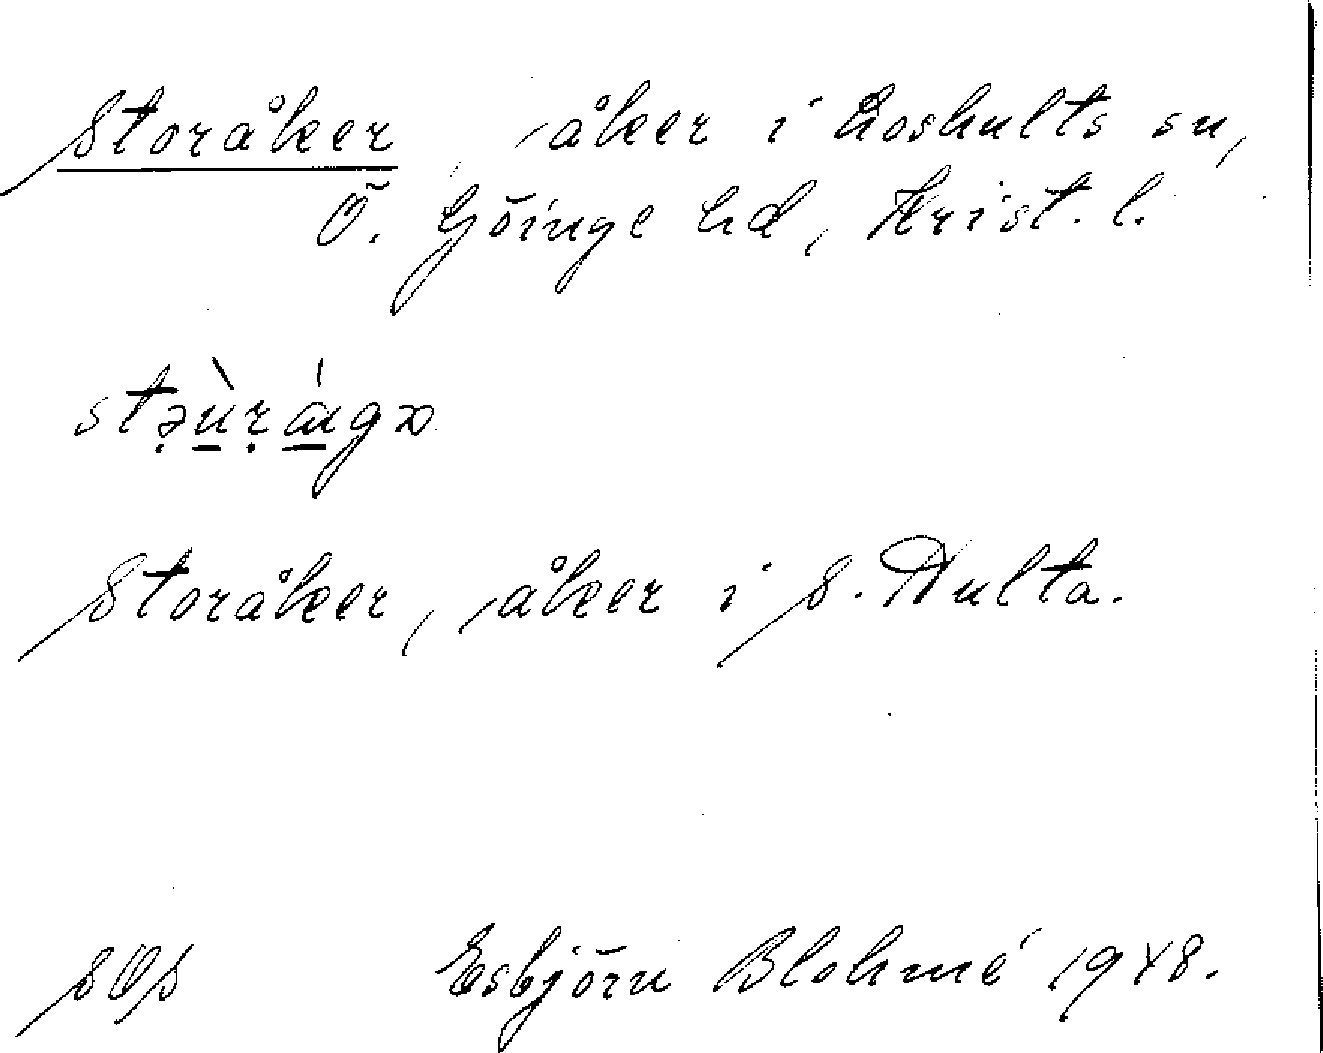 Storåker, åker i Loshults sn,
Ö. Göinge hd, Krist. l.
Storåker, åker i S. Hulta.
SOS Esbjörn Blohmé 1948.